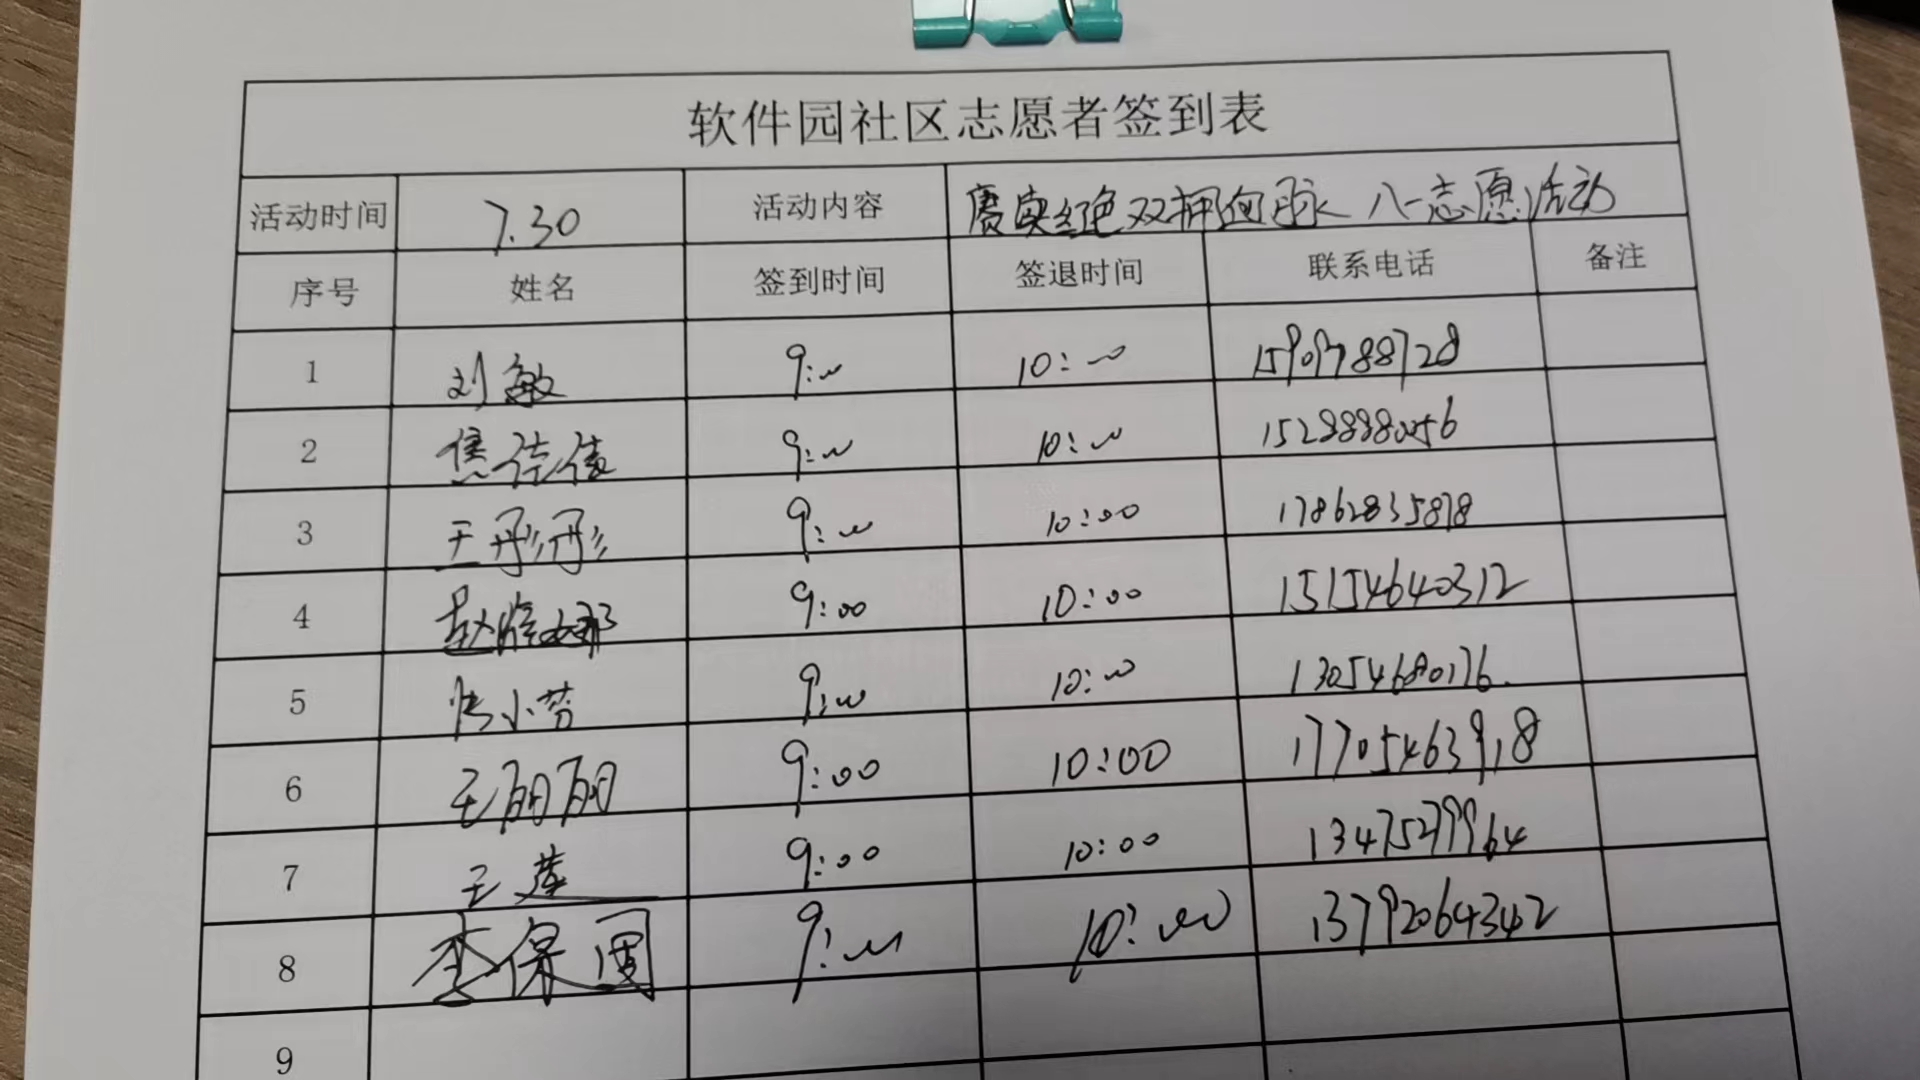 软件园社区志愿者签到表
活动时间 7.30 活动内容 赓续红色双拥血脉 八一志愿活动
序号 姓名 签到时间 签退时间 联系电话 备注
1 刘敏 9:00 10:00
2 焦倩倩 9:00 10:00
3 王彤彤 9:00 10:00 17862835878
4 赵 娜 9:00 10:00 15154640312
5 小芬 9:00 10:00 13054680176.
6 王丽丽 9:00 10:00 17705463918
7 王莲 9:00 10:00 13475279964
8 李保国 9:00 10:00 13792064342
9